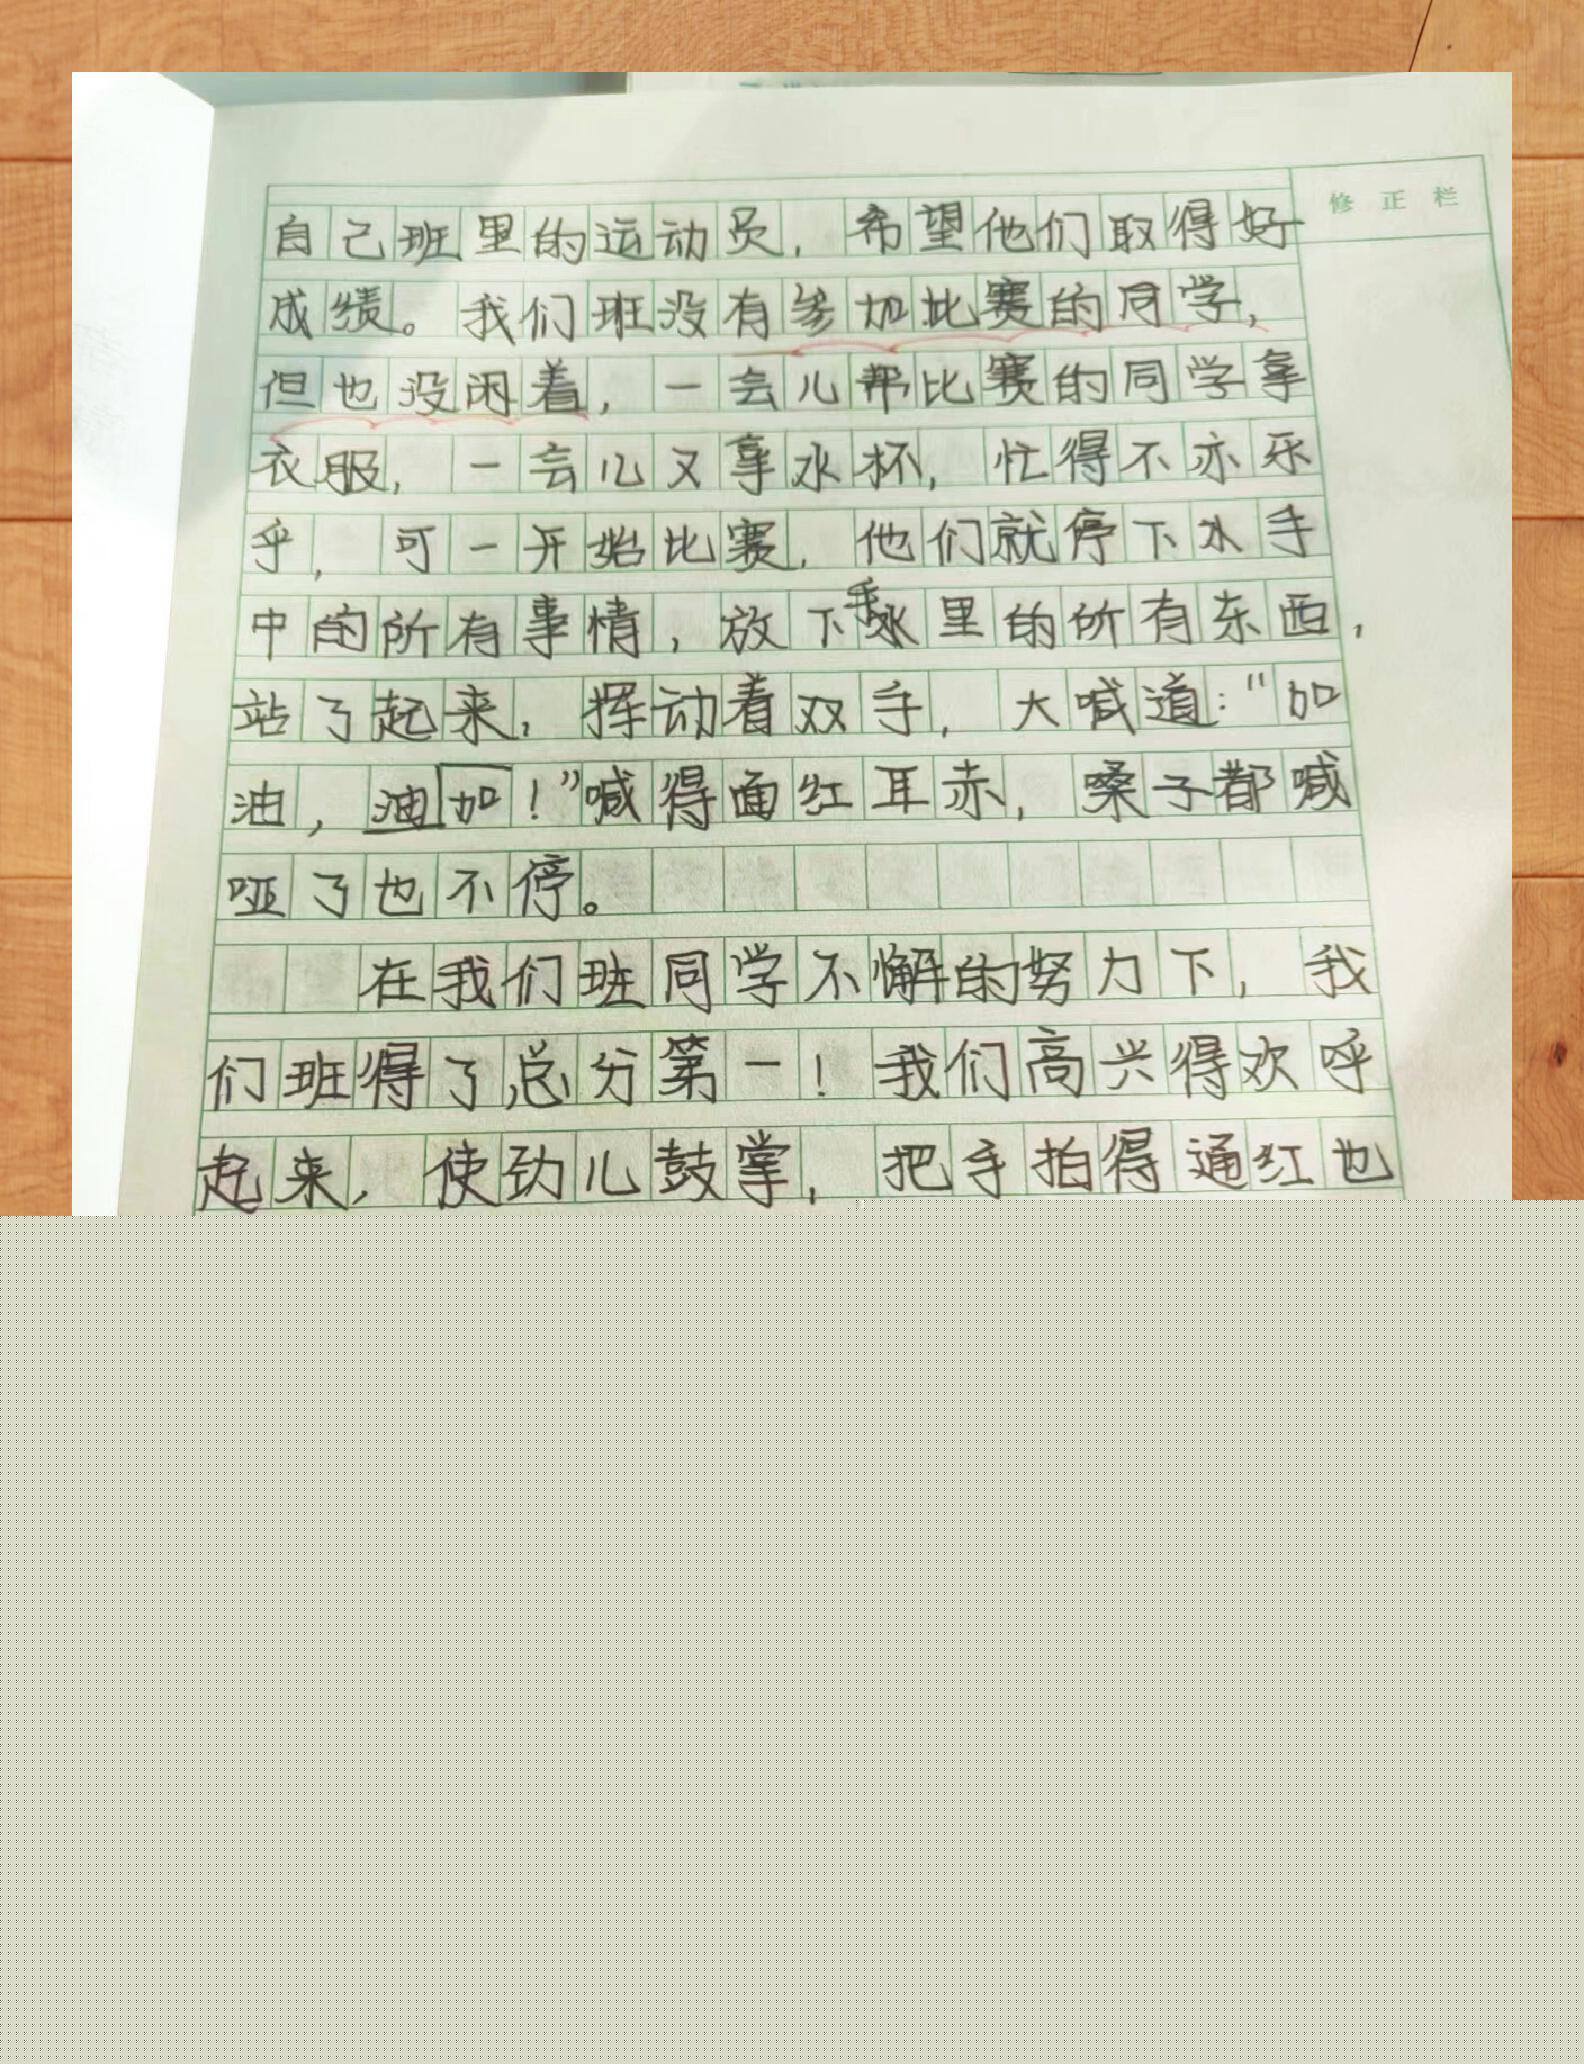 修正栏
自己班里的运动员，希望他们取得好
成绩。我们班没有参加比赛的同学，
但也没闲着，一会儿帮比赛的同学拿
衣服，一会儿又拿水杯，忙得不亦乐
乎，可一开始比赛，他们就停下水手
中的所有事情，放下手里的所有东西，
站了起来，挥动着双手，大喊道：“加
油，油加！”喊得面红耳赤，嗓子都喊
哑了也不停。
在我们班同学不懈的努力下，我
们班得了总分第一！我们高兴得欢呼
起来，使劲儿鼓掌，把手拍得通红也